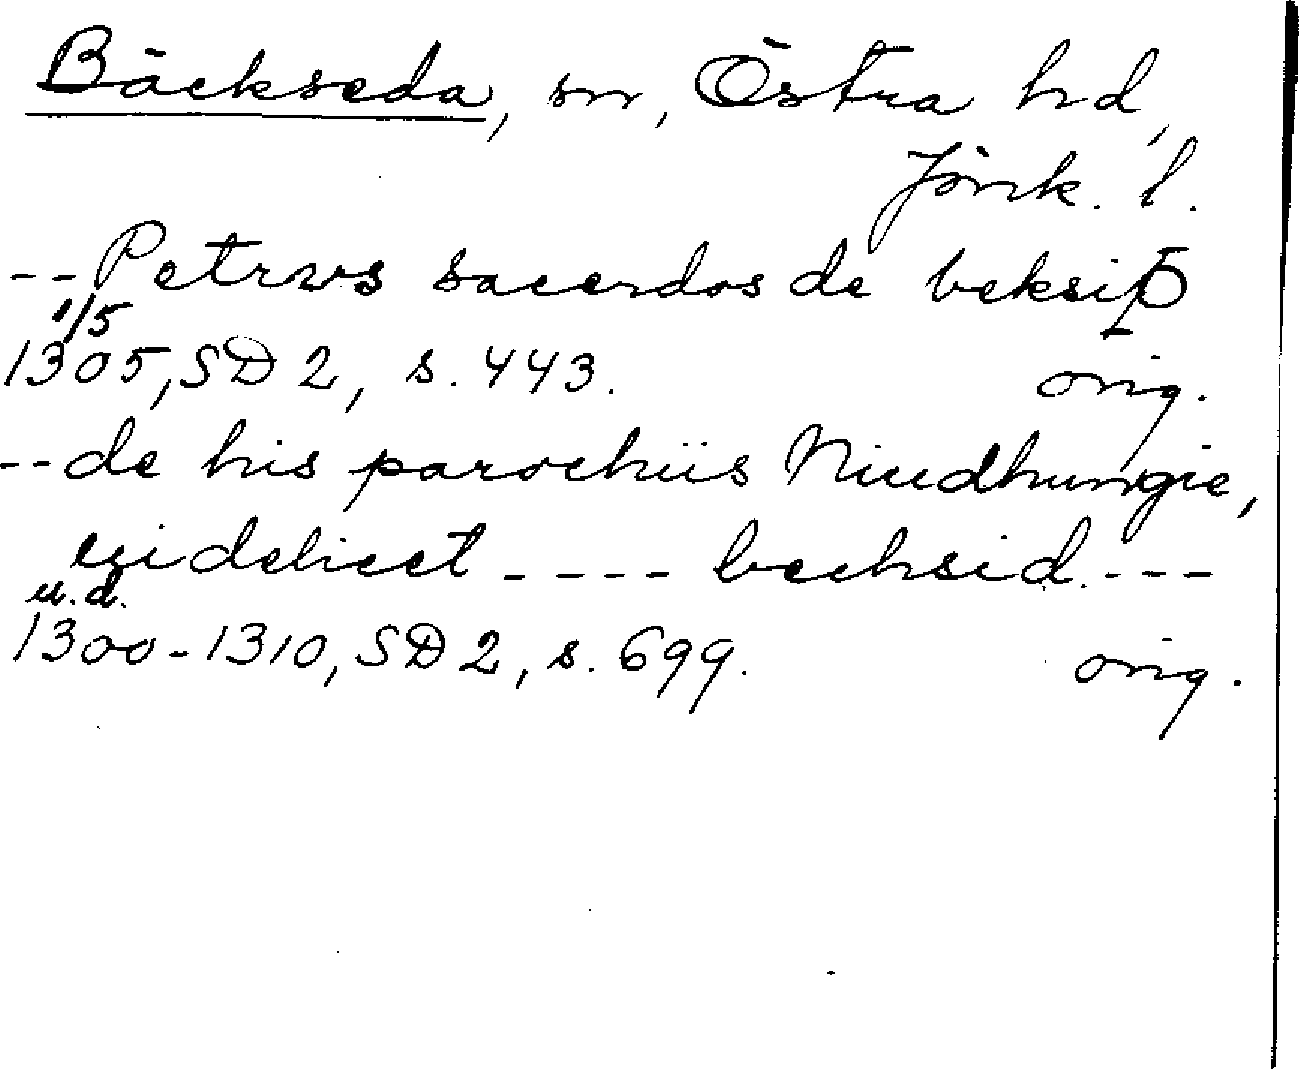 Bäckseda, sn, Östra hd,
Jönk. l.
-- Petrus sacerdos de beksiþ
1/5
1305, SD 2, s. 443. orig.
-- de his parochiis Niudhungie,
uidelicet ---- bechsid. ---
u.d.
1300-1310, SD 2, s. 699. orig.